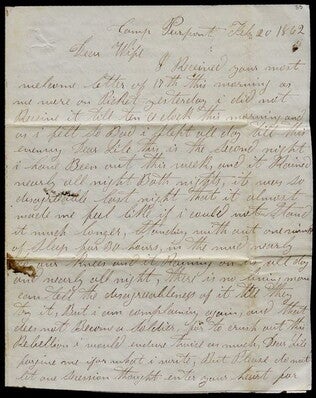 Camp Pierpont Feb 20 1862
Dear Wife
I Received your most
welcome letter of 17th this morning as
we were on Picket yesterday i did not
Receive it till this morning and
as i felt so Bad i slept all day till this
evening Dear this is the second night
i have Been out this week, and it Rained
nearly all night Both nights, it was so
disagreeable last night that it almost
made me feel like if i could not stand
it much longer, Standing without one minute
of sleep for 30 hours, in the mud nearly
to our knees and it Raining on us all day
and nearly all night, there is no thing
can tell the disagreeableness of it till they
try it, But i am complaining again, and that
does not Become a Soldier for to crush out this
Rebellion i would endure twice as much, Dear
forgive me for what i write, But Please do not
let one thought enter your heart for